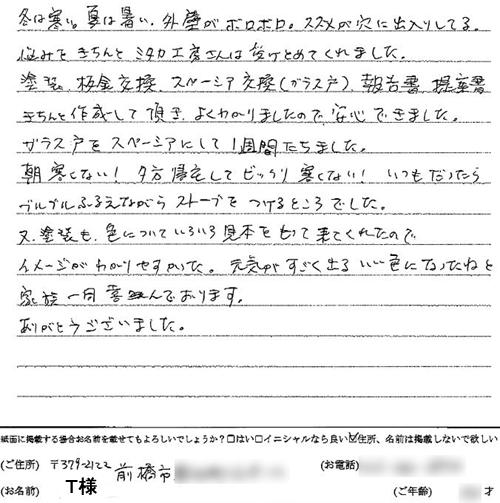 冬は寒い。夏は暑い。外壁がボロボロ。スズメが穴に出入りしてる。
悩みをきちんとミタカ工房さんは受けとめてくれました。
塗装、板金交換、スペーシア交換(ガラス戸)、報告書、提案書
きちんと作成して頂き、よくわかりましたので、安心できました。
ガラス戸をスペーシアにして1週間たちました。
朝寒くない!夕方帰宅してビックリ寒くない!いつもだったら
ブルブルふるえながらストーブをつけるところでした。
又、塗装も、色についていろいろ見本をもって来てくれたので
イメージがわかりやすかった。元気がすごく出るいい色になったねと
家族一同喜んでおります。
ありがとうございました。
紙面に掲載する場合お名前を載せてもよろしいでしょうか?□はい□イニシャルなら良い☑住所、名前は掲載しないで欲しい
(ご住所) 〒379-2122 前橋市 (お電話)
(お名前) T様 (ご年齢) 才